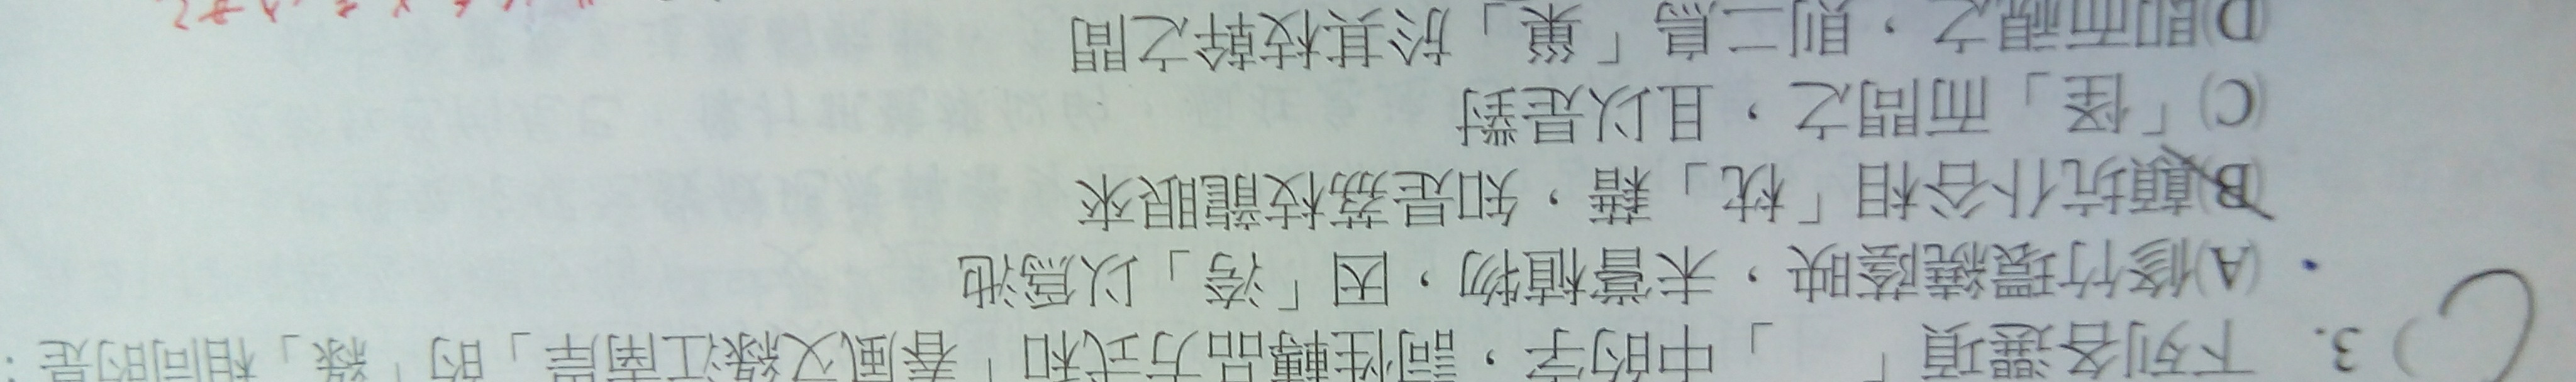 )3. 下列各選項「 」中的字，詞性轉品方式和「春風又綠江南岸」的「綠」相同的是：
(A)修竹環繞蔭映，未嘗植物，因「洿」以為池
(B)顛坑仆谷相「枕」藉，知是荔枝龍眼來
(C)「怪」而問之，且以是對
(D)即而視之，則二鳥「巢」於其枝幹之間